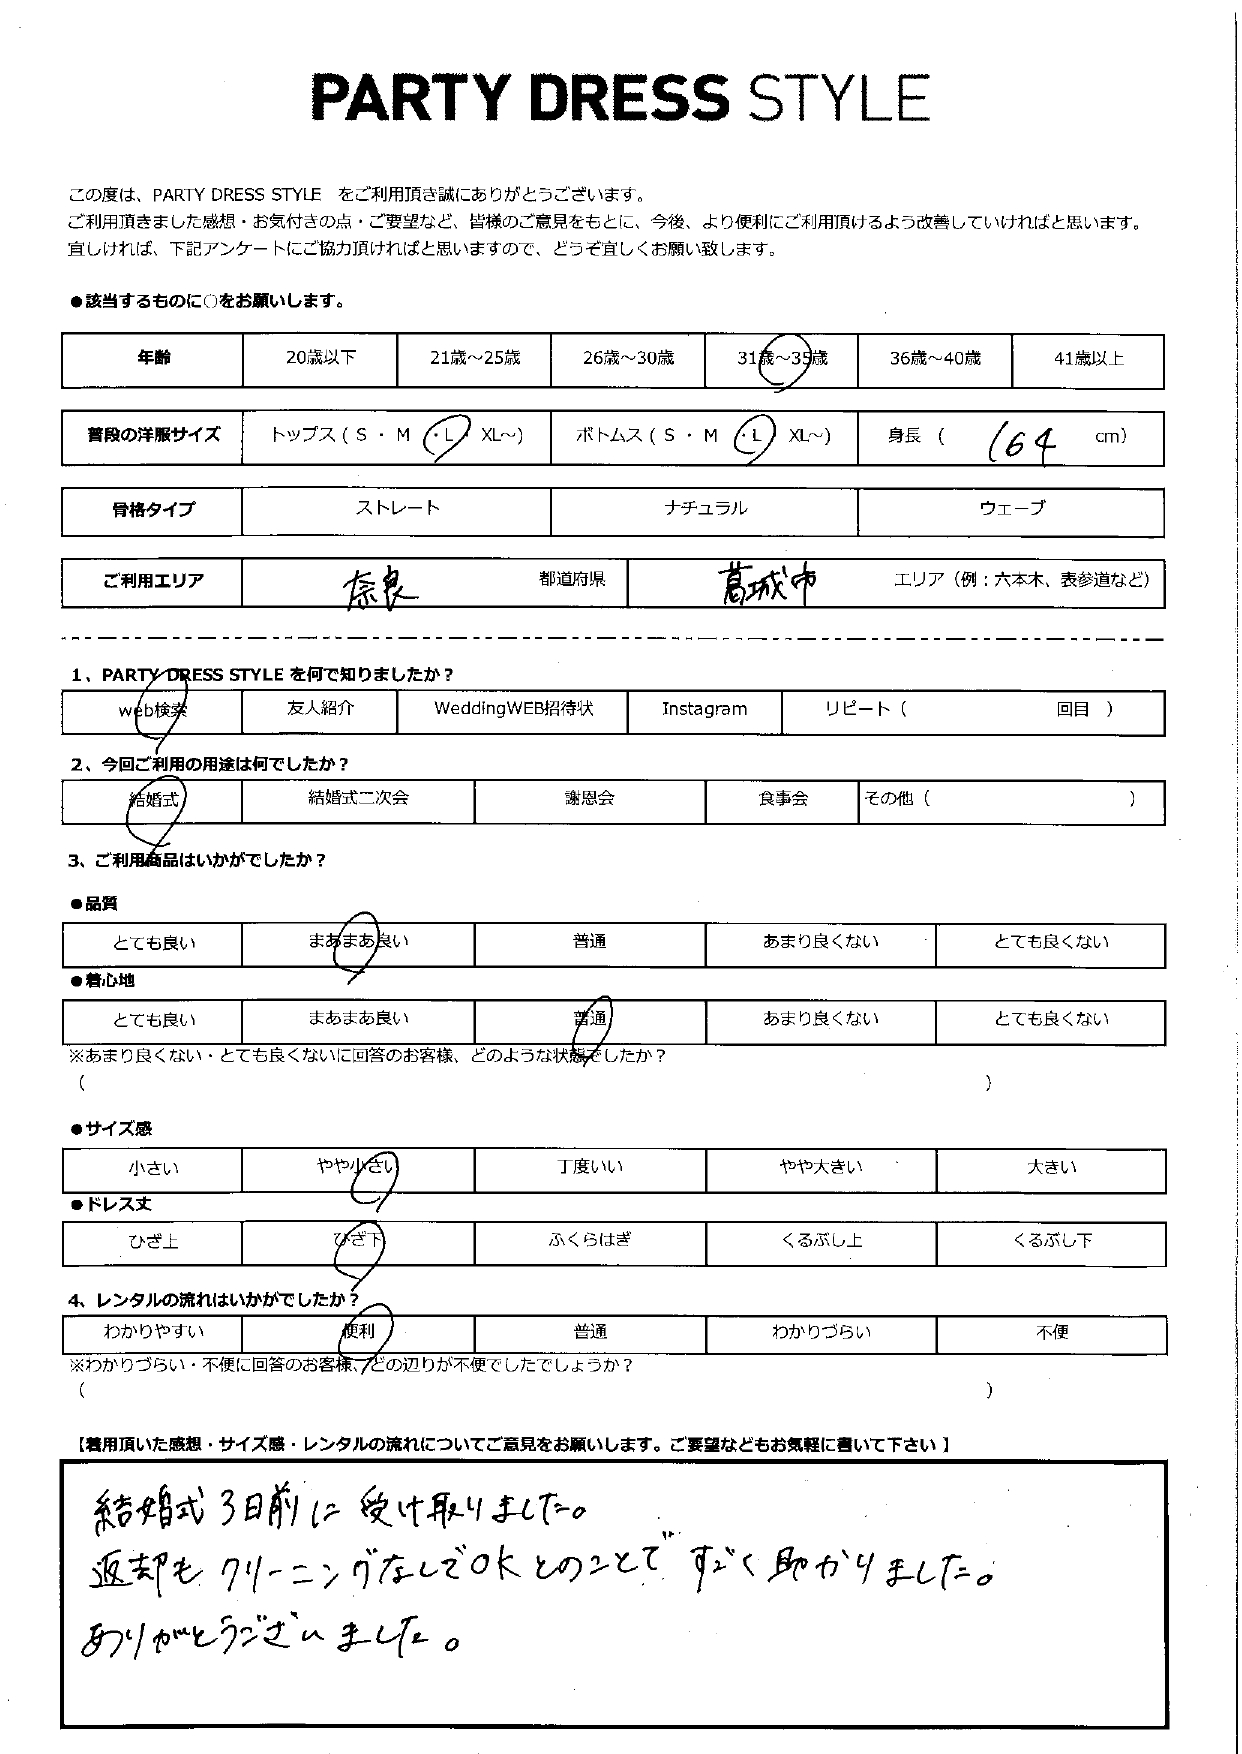 PARTY DRESS STYLE
この度は、PARTY DRESS STYLE をご利用頂き誠にありがとうございます。
ご利用頂きました感想・お気付きの点・ご要望など、皆様のご意見をもとに、今後、より便利にご利用頂けるよう改善していければと思います。
宜しければ、下記アンケートにご協力頂ければと思いますので、どうぞ宜しくお願い致します。
●該当するものに○をお願いします。
年齢 20歳以下 21歳～25歳 26歳～30歳 31歳～35歳 36歳～40歳 41歳以上
普段の洋服サイズ トップス ( S ・ M ・L・ XL～) ボトムス ( S ・ M ・L・ XL～) 身長 ( 164 cm)
骨格タイプ ストレート ナチュラル ウェーブ
ご利用エリア 奈良 都道府県 葛城市 エリア（例：六本木、表参道など）
1、PARTY DRESS STYLE を何で知りましたか？
web検索 友人紹介 WeddingWEB招待状 Instagram リピート（ 回目 ）
2、今回ご利用の用途は何でしたか？
結婚式 結婚式二次会 謝恩会 食事会 その他（ ）
3、ご利用商品はいかがでしたか？
●品質
とても良い まあまあ良い 普通 あまり良くない とても良くない
●着心地
とても良い まあまあ良い 普通 あまり良くない とても良くない
※あまり良くない・とても良くないに回答のお客様、どのような状態でしたか？
( )
●サイズ感
小さい やや小さい 丁度いい やや大きい 大きい
●ドレス丈
ひざ上 ひざ下 ふくらはぎ くるぶし上 くるぶし下
4、レンタルの流れはいかがでしたか？
わかりやすい 便利 普通 わかりづらい 不便
※わかりづらい・不便に回答のお客様、どの辺りが不便でしたでしょうか？
( )
【着用頂いた感想・サイズ感・レンタルの流れについてご意見をお願いします。ご要望などもお気軽に書いて下さい 】
結婚式3日前に受け取りました。
返却もクリーニングなしでOKとのことですごく助かりました。
ありがとうございました。